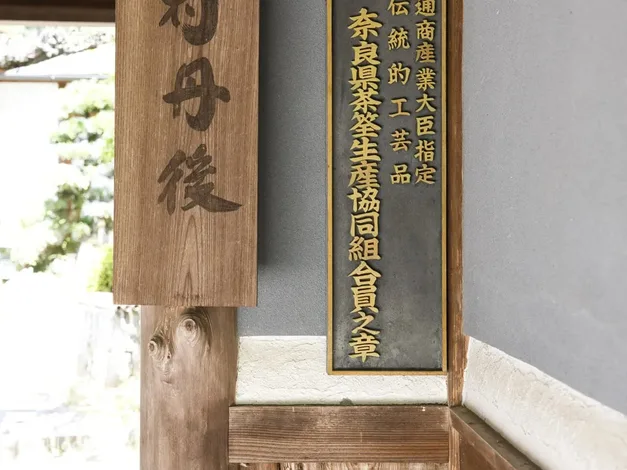 通商産業大臣指定
伝統的工芸品
奈良県茶筌生産協同組合員之章
村丹後